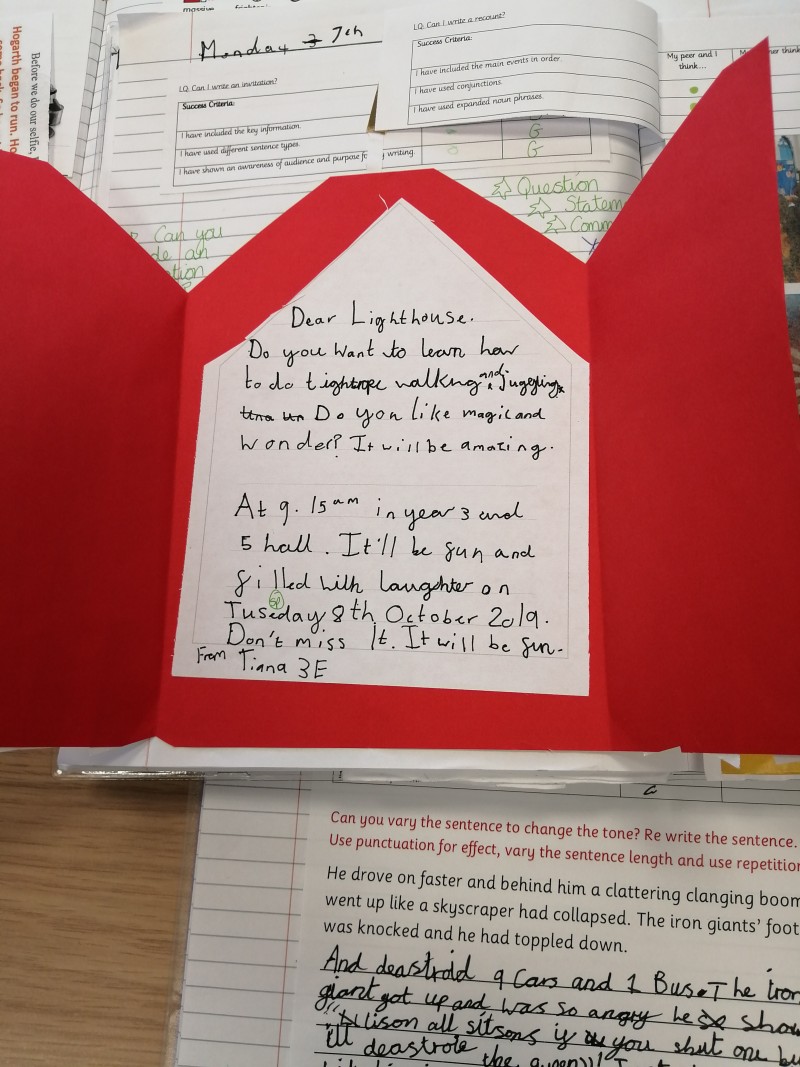 massive
Before we do our selfie,
Hogarth began to run. Ho
Monday 7th
LQ: Can I write an invitation?
Success Criteria:
I have included the key information.
I have used different sentence types.
I have shown an awareness of audience and purpose fo
LQ: Can I write a recount?
Success Criteria:
I have included the main events in order.
I have used conjunctions.
I have used expanded noun phrases.
writing.
G
G
My peer and I
think...
her think
Question
Statem
Comm
Can you
de an
tion
Dear Lighthouse.
Do you want to learn how
to do tightrope walkng and juggling
Do you like magic and
wonder? It will be amazing.
At 9.15am in year 3 and
5 hall. It'll be fun and
filled with laughter on
sp
Tuseday 8th October 2019.
Don't miss It. It will be fun.
From Tiana 3E
Can you vary the sentence to change the tone? Re write the sentence.
Use punctuation for effect, vary the sentence length and use repetition
He drove on faster and behind him a clattering clanging boom
went up like a skyscraper had collapsed. The iron giants' foot
was knocked and he had toppled down.
And deastroid 9 Cars and 1 Bus. The iron
giant got up and was so angry he show
lison all sitsons if you shut one bu
ill deastrote the